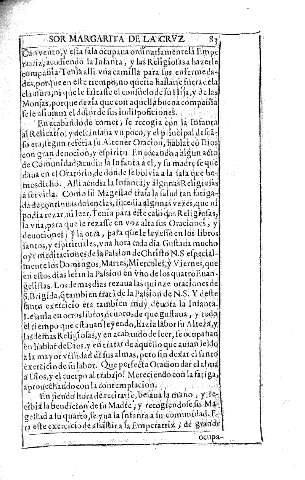 SOR MARGARITA DE LA CRVZ 83
Convento, y esta sala ocupaua ordinariamente la Empe
ratriz, acudiendo la Infanta, y las Religiosas a hazerle
compañia Tenia alli vna camilla para sus enfermeda-
des, porque en este tiempo, no quito hazerle fuera de la
clausura, ni que le faltasse el consuelo de su Hija, y de las
Monjas, porque dezia que con aquella buena compañia
se le aliuiauan el dolor de sus indisposiciones.
En acabando de comer, se recogia con la Infanta
al Relicario, y descansaua vn poco, y el principal descan-
so era, segun referia su Alteza en Oracion, hablar con Dios
con gran deuocion, y espiritu. En tocando a algun acto
de Comunidad acudia la Infanta a el, y su madre se que
daua en el Oratorio, de donde se boluia a la sala que he-
mos dicho. Alli acudia la Infanta, y algunas Religiosas
a seruirla. Como su Magestad traia la salud tan fatiga-
da de continuas dolencias, sucedia algunas vezes, que ni
podia rezar, ni leer. Tenia para este caso dos Religiosas,
la vna, para que le rezasse en voz alta sus Oraciones, y
deuociones; y la otra, para que le leyesse en los libros
santos, y espirituales, vna hora cada dia. Gustaua mucho
oyr meditaciones de la Passion de Christo N. S especial-
mente los Domingos, Martes, Miercoles, y Viernes, que
en estos dias leian la Passion en vno de los quatro Euan-
gelistas. Los demas dias rezaua las quinze oraciones de
S. Brigida, q tambien tratā de la Passion de N. S. Y deste
santo exercicio era tambien muy deuota la Infanta.
Leianla en otros libros deuotos, de que gustaua, y todo
el tiempo que estauan leyendo, hazia labor su Alteza, y
las demas Religiosas, y en acabando de leer, se ocupauan
en hablar de Dios, y en tratar de aquello que auian leido
a la mayor vtilidad de sus almas, pero sin dexar el santo
exercicio de su labor. Que perfecta Oracion dar el alma
a Dios, y el cuerpo al trabajo! Mereciendo con la fatiga,
aprouechando con la contemplacion.
En siendo hora de retirarse, besaua la mano, y re-
cebia la bendicion de su Madre, y recogiendose su Ma-
gestad a su quarto, se yua la Infanta a su comunidad. En
este exercicio de assistir a la Emperatriz, de grande
ocupa-